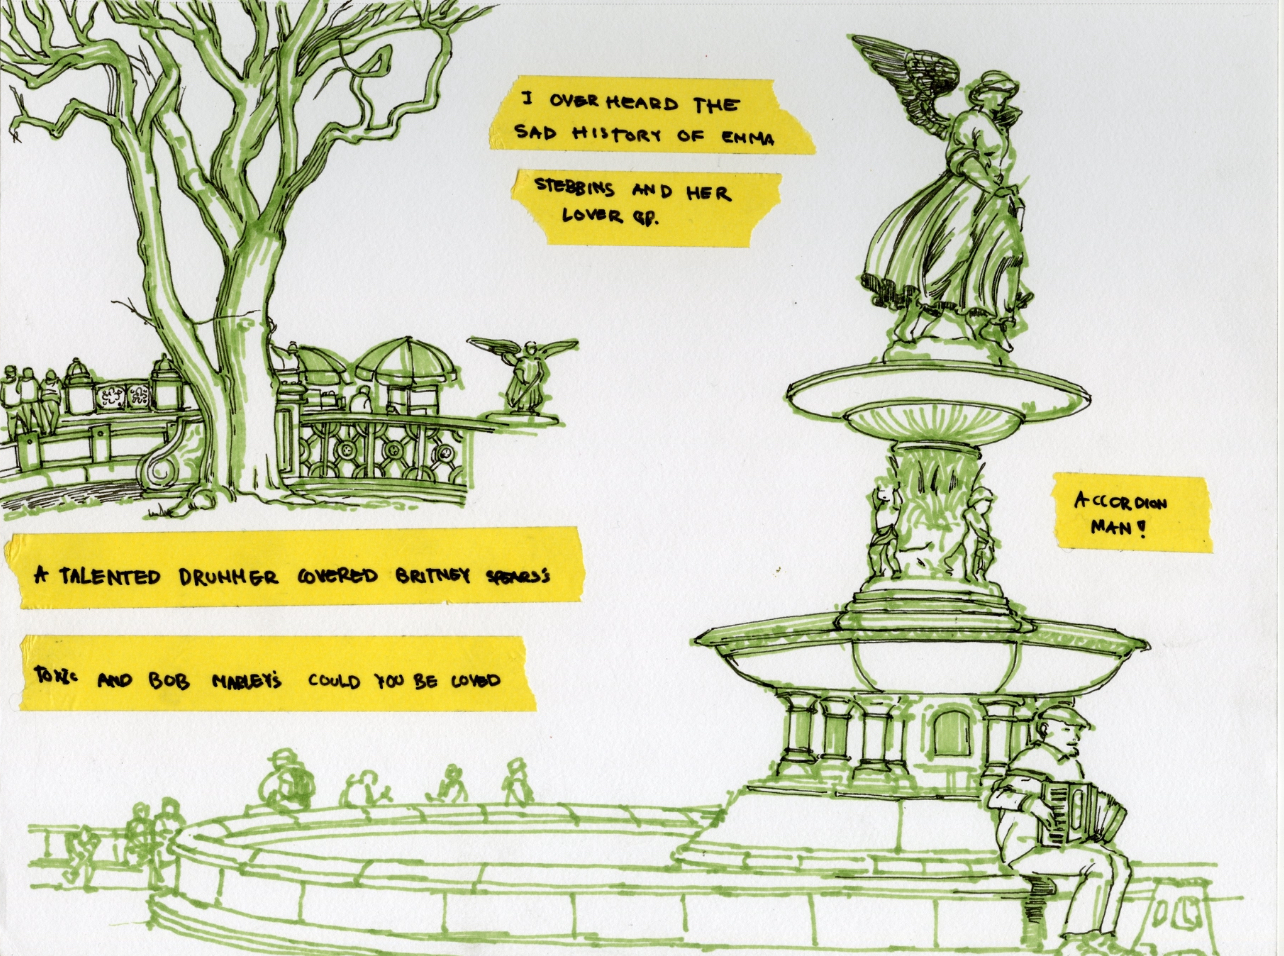 I OVERHEARD THE
SAD HISTORY OF EMMA
STEBBINS AND HER
LOVER
ACCORDION
MAN!
A TALENTED DRUMMER COVERED BRITNEY SPEARS'S
TOXIC AND BOB MARLEY'S COULD YOU BE LOVED